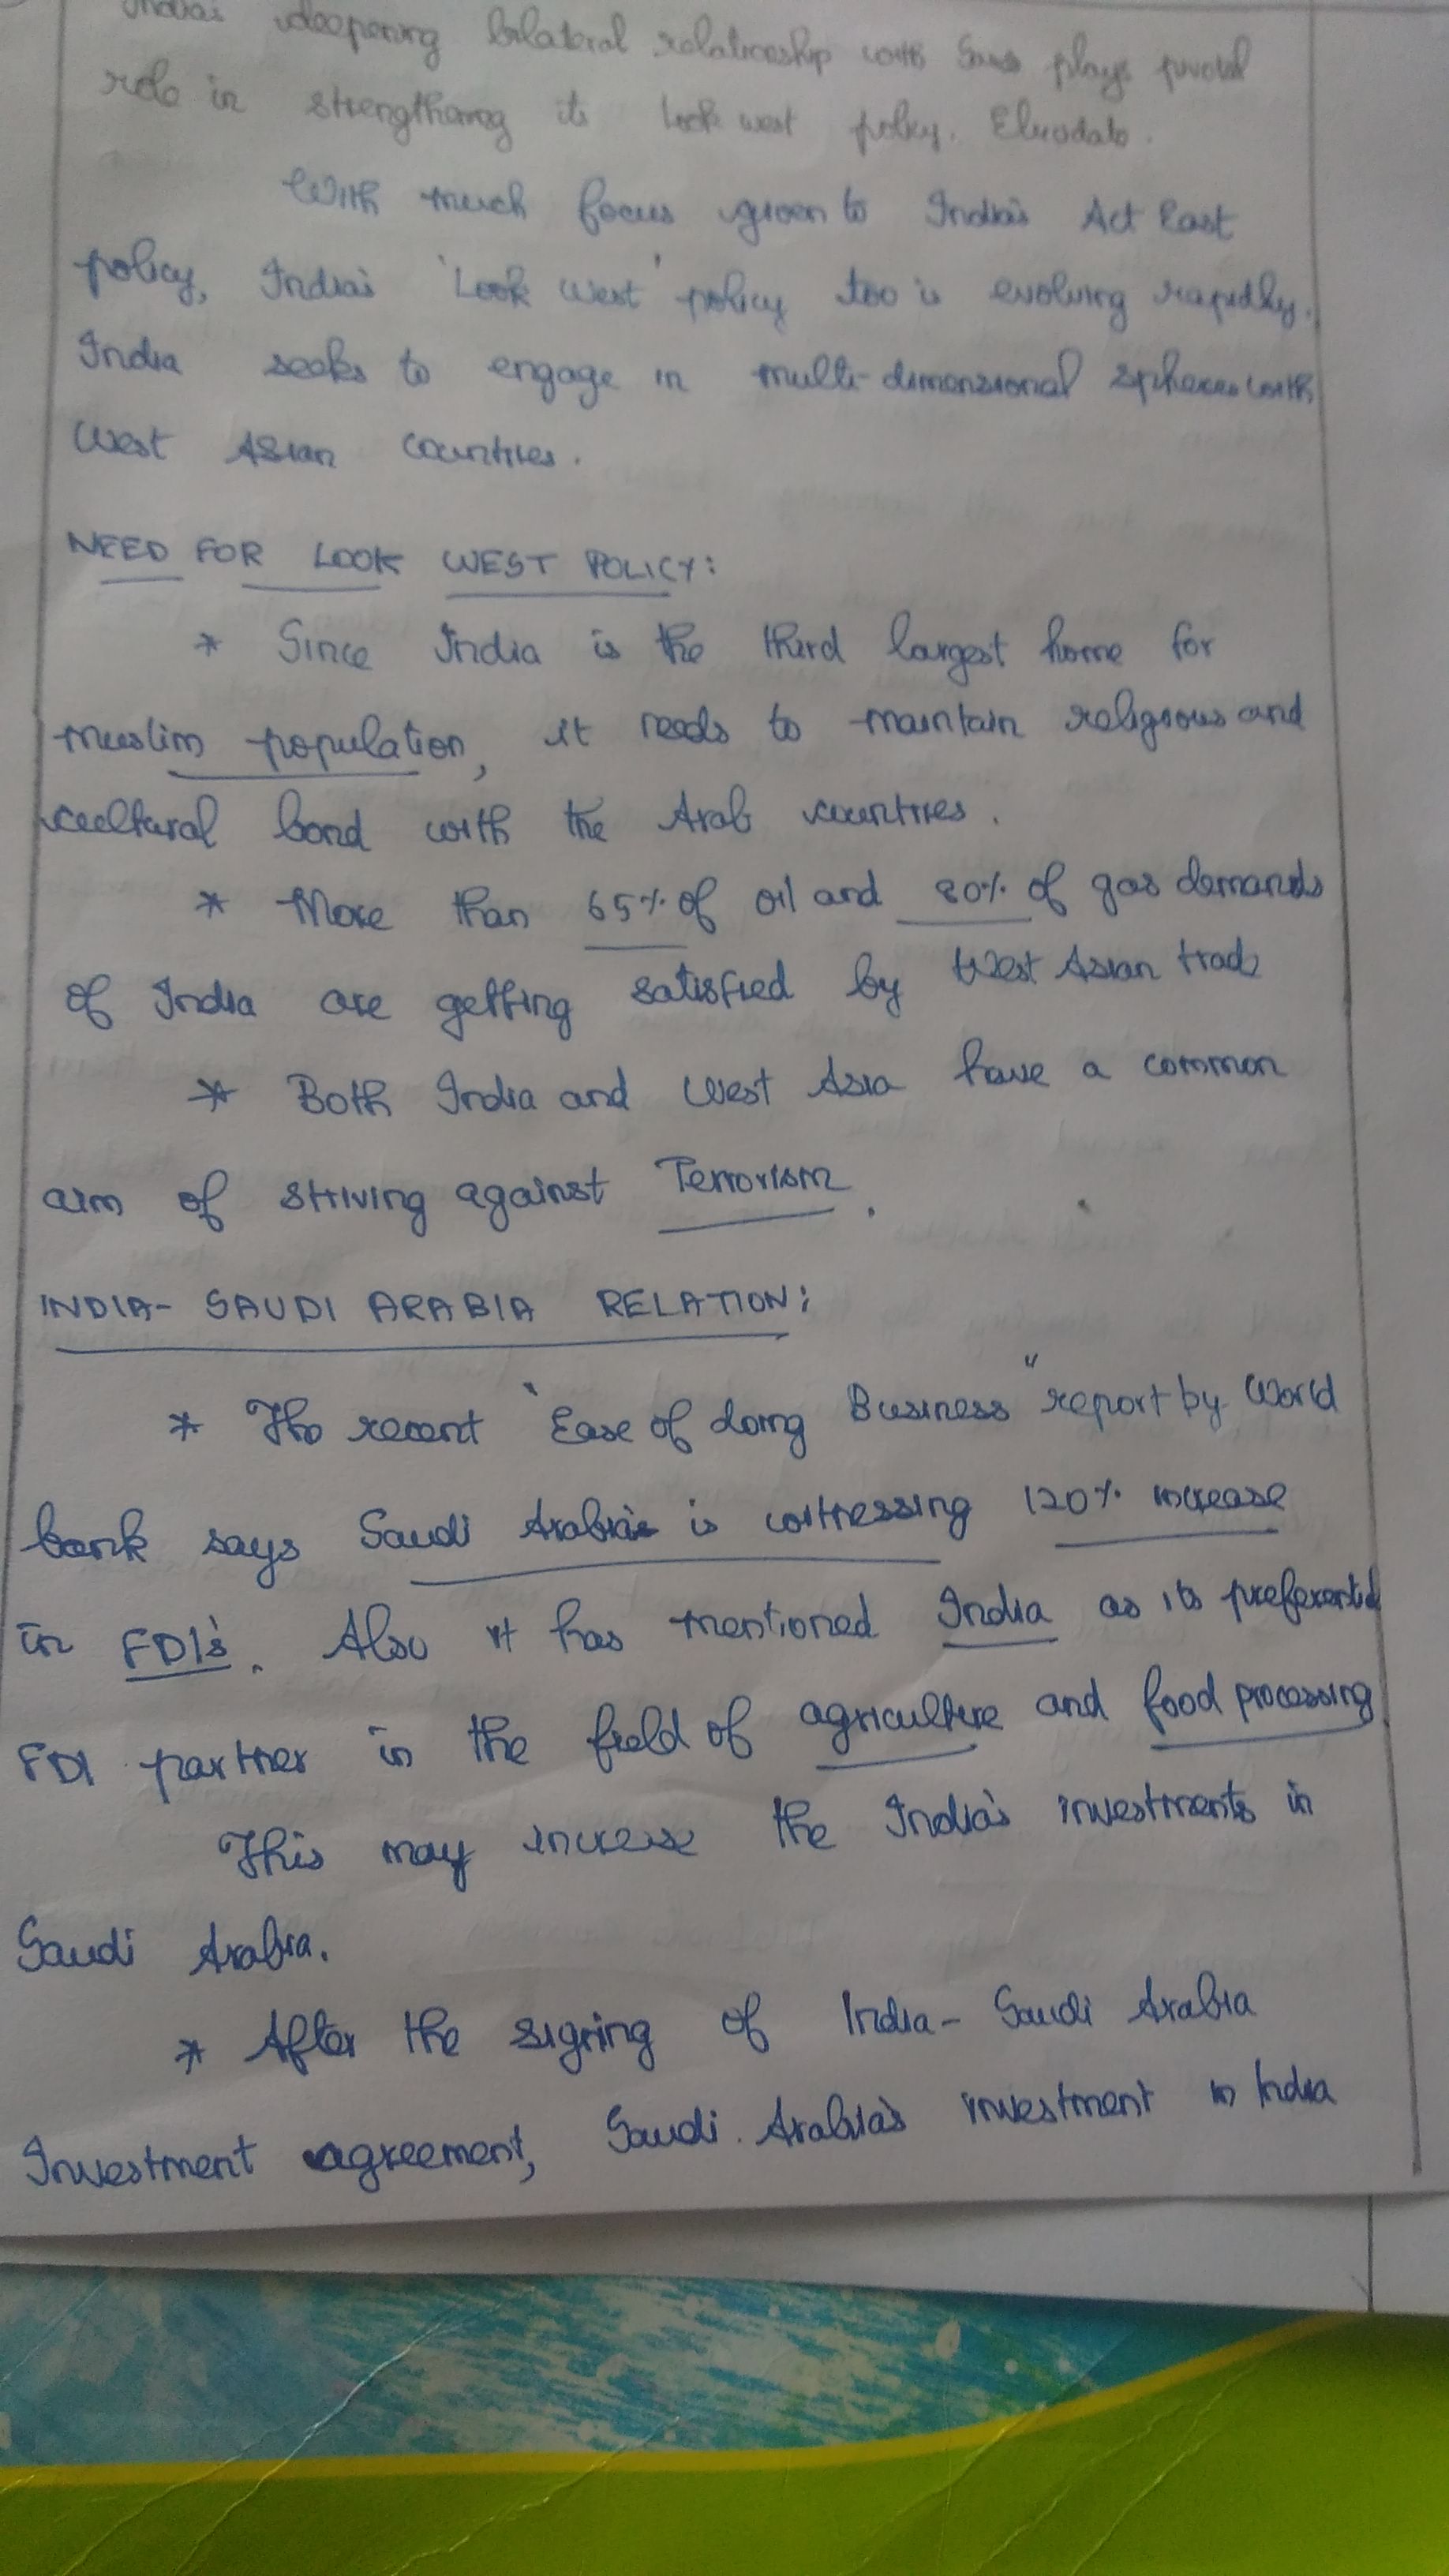 India's deepening bilateral relationship with Saudi plays pivotal
role in strengthening its look west policy. Elucidate.
With much focus given to India's Act East
policy, India's 'Look West' policy too is evolving rapidly.
India seeks to engage in multi-dimensional spheres with
West Asian countries.
NEED FOR LOOK WEST POLICY:
* Since India is the third largest home for
muslim population, it needs to maintain religious and
cultural bond with the Arab countries.
* More than 65% of oil and 80% of gas demands
of India are getting satisfied by West Asian trade
* Both India and West Asia have a common
aim of striving against Terrorism.
INDIA- SAUDI ARABIA RELATION:
* The recent "Ease of doing Business" report by World
bank says Saudi Arabia's is witnessing 120% increase
in FDI's. Also it has mentioned India as its preferential
FDI partner in the field of agriculture and food processing
This may increase the India's investments in
Saudi Arabia.
* After the signing of India- Saudi Arabia
Investment agreement, Saudi Arabia's investment in India